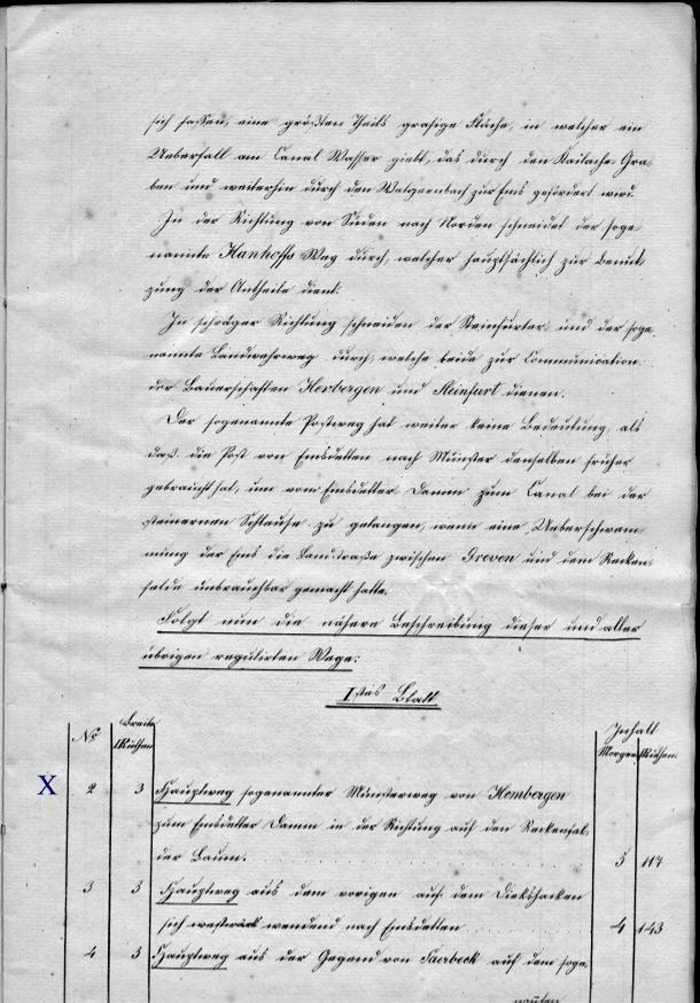 sich fassen, eine größten Theils grasige Fläche, in welcher ein
Ueberfall am Canal Wasser giebt, das durch den Gra-
ben und weiterhin durch den zur Ems gefördert wird.
In der Richtung von Süden nach Norden schneidet der soge-
nannte Hanhoffs Weg durch, welcher hauptsächlich zur Benut-
zung der Antheile dient.
In schräger Richtung schneiden der Steinfurter und der soge-
nannte Landwehrweg durch, welche beide zur Communication
der Bauerschaften Herbergen und Steinfurt dienen.
Der sogenannte Postweg hat weiter keine Bedeutung, als
daß die Post von Emsdetten nach Münster denselben früher
gebraucht hat, um vom Emsdetter Damm zum Canal bei der
steinernen Schleuse zu gelangen, wenn eine Ueberschwem-
mung der Ems die Landstraße zwischen Greven und dem Recken-
felde unbrauchbar gemacht hatte.
Folgt nun die nähere Beschreibung dieser und aller
übrigen regulirten Wege:
Istes Blatt
No Breite Ruthen Inhalt Morgen Ruthen
X 2 3 Hauptweg sogenannter Münsterweg von Hembergen
zum Emsdetter Damm in der Richtung auf den Reckenfel-
der Baum. 5 117
3 3 Hauptweg aus dem vorigen auf dem
sich wendend nach Emsdetten 4 143
4 3 Hauptweg aus der Gegend von Saerbeck auf dem soge-
nannten